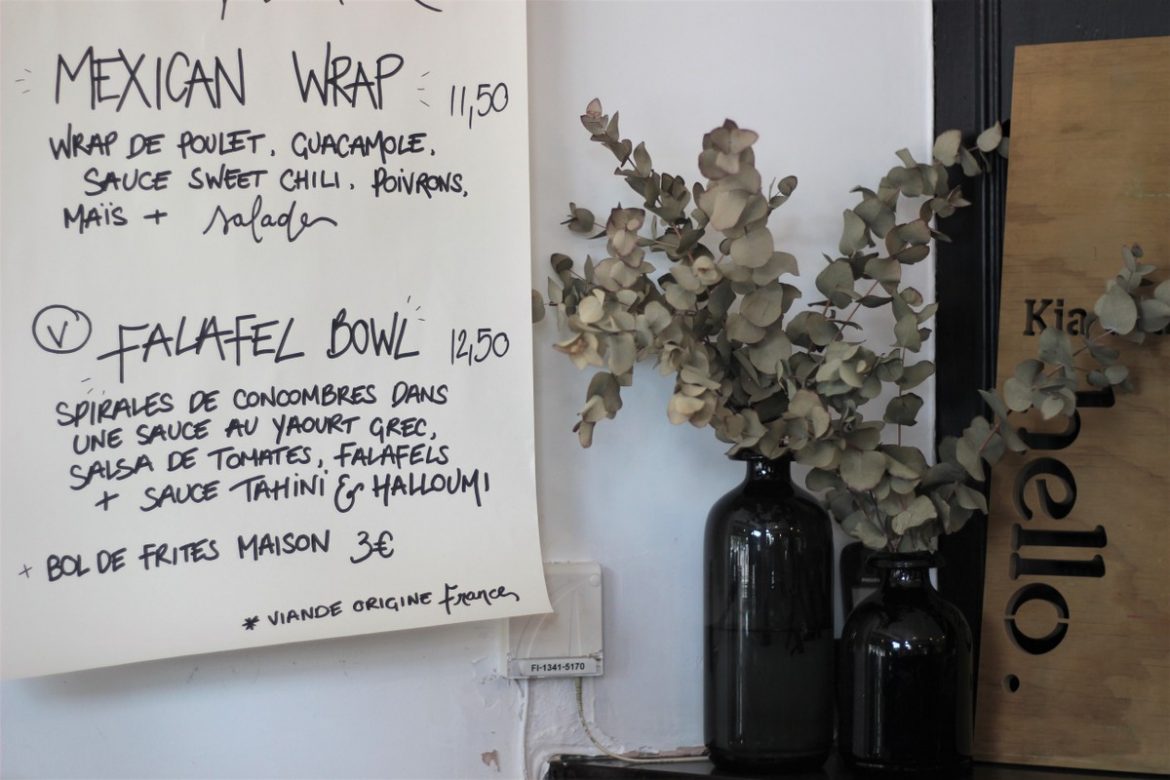 MEXICAN WRAP 11,50
WRAP DE POULET, GUACAMOLE,
SAUCE SWEET CHILI, POIVRONS,
MAÏS + salade
V FALAFEL BOWL 12,50
SPIRALES DE CONCOMBRES DANS
UNE SAUCE AU YAOURT GREC,
SALSA DE TOMATES, FALAFELS
+ SAUCE TAHINI & HALLOUMI
+ BOL DE FRITES MAISON 3€
* VIANDE ORIGINE France
FI-1341-5170
Kia
hello.